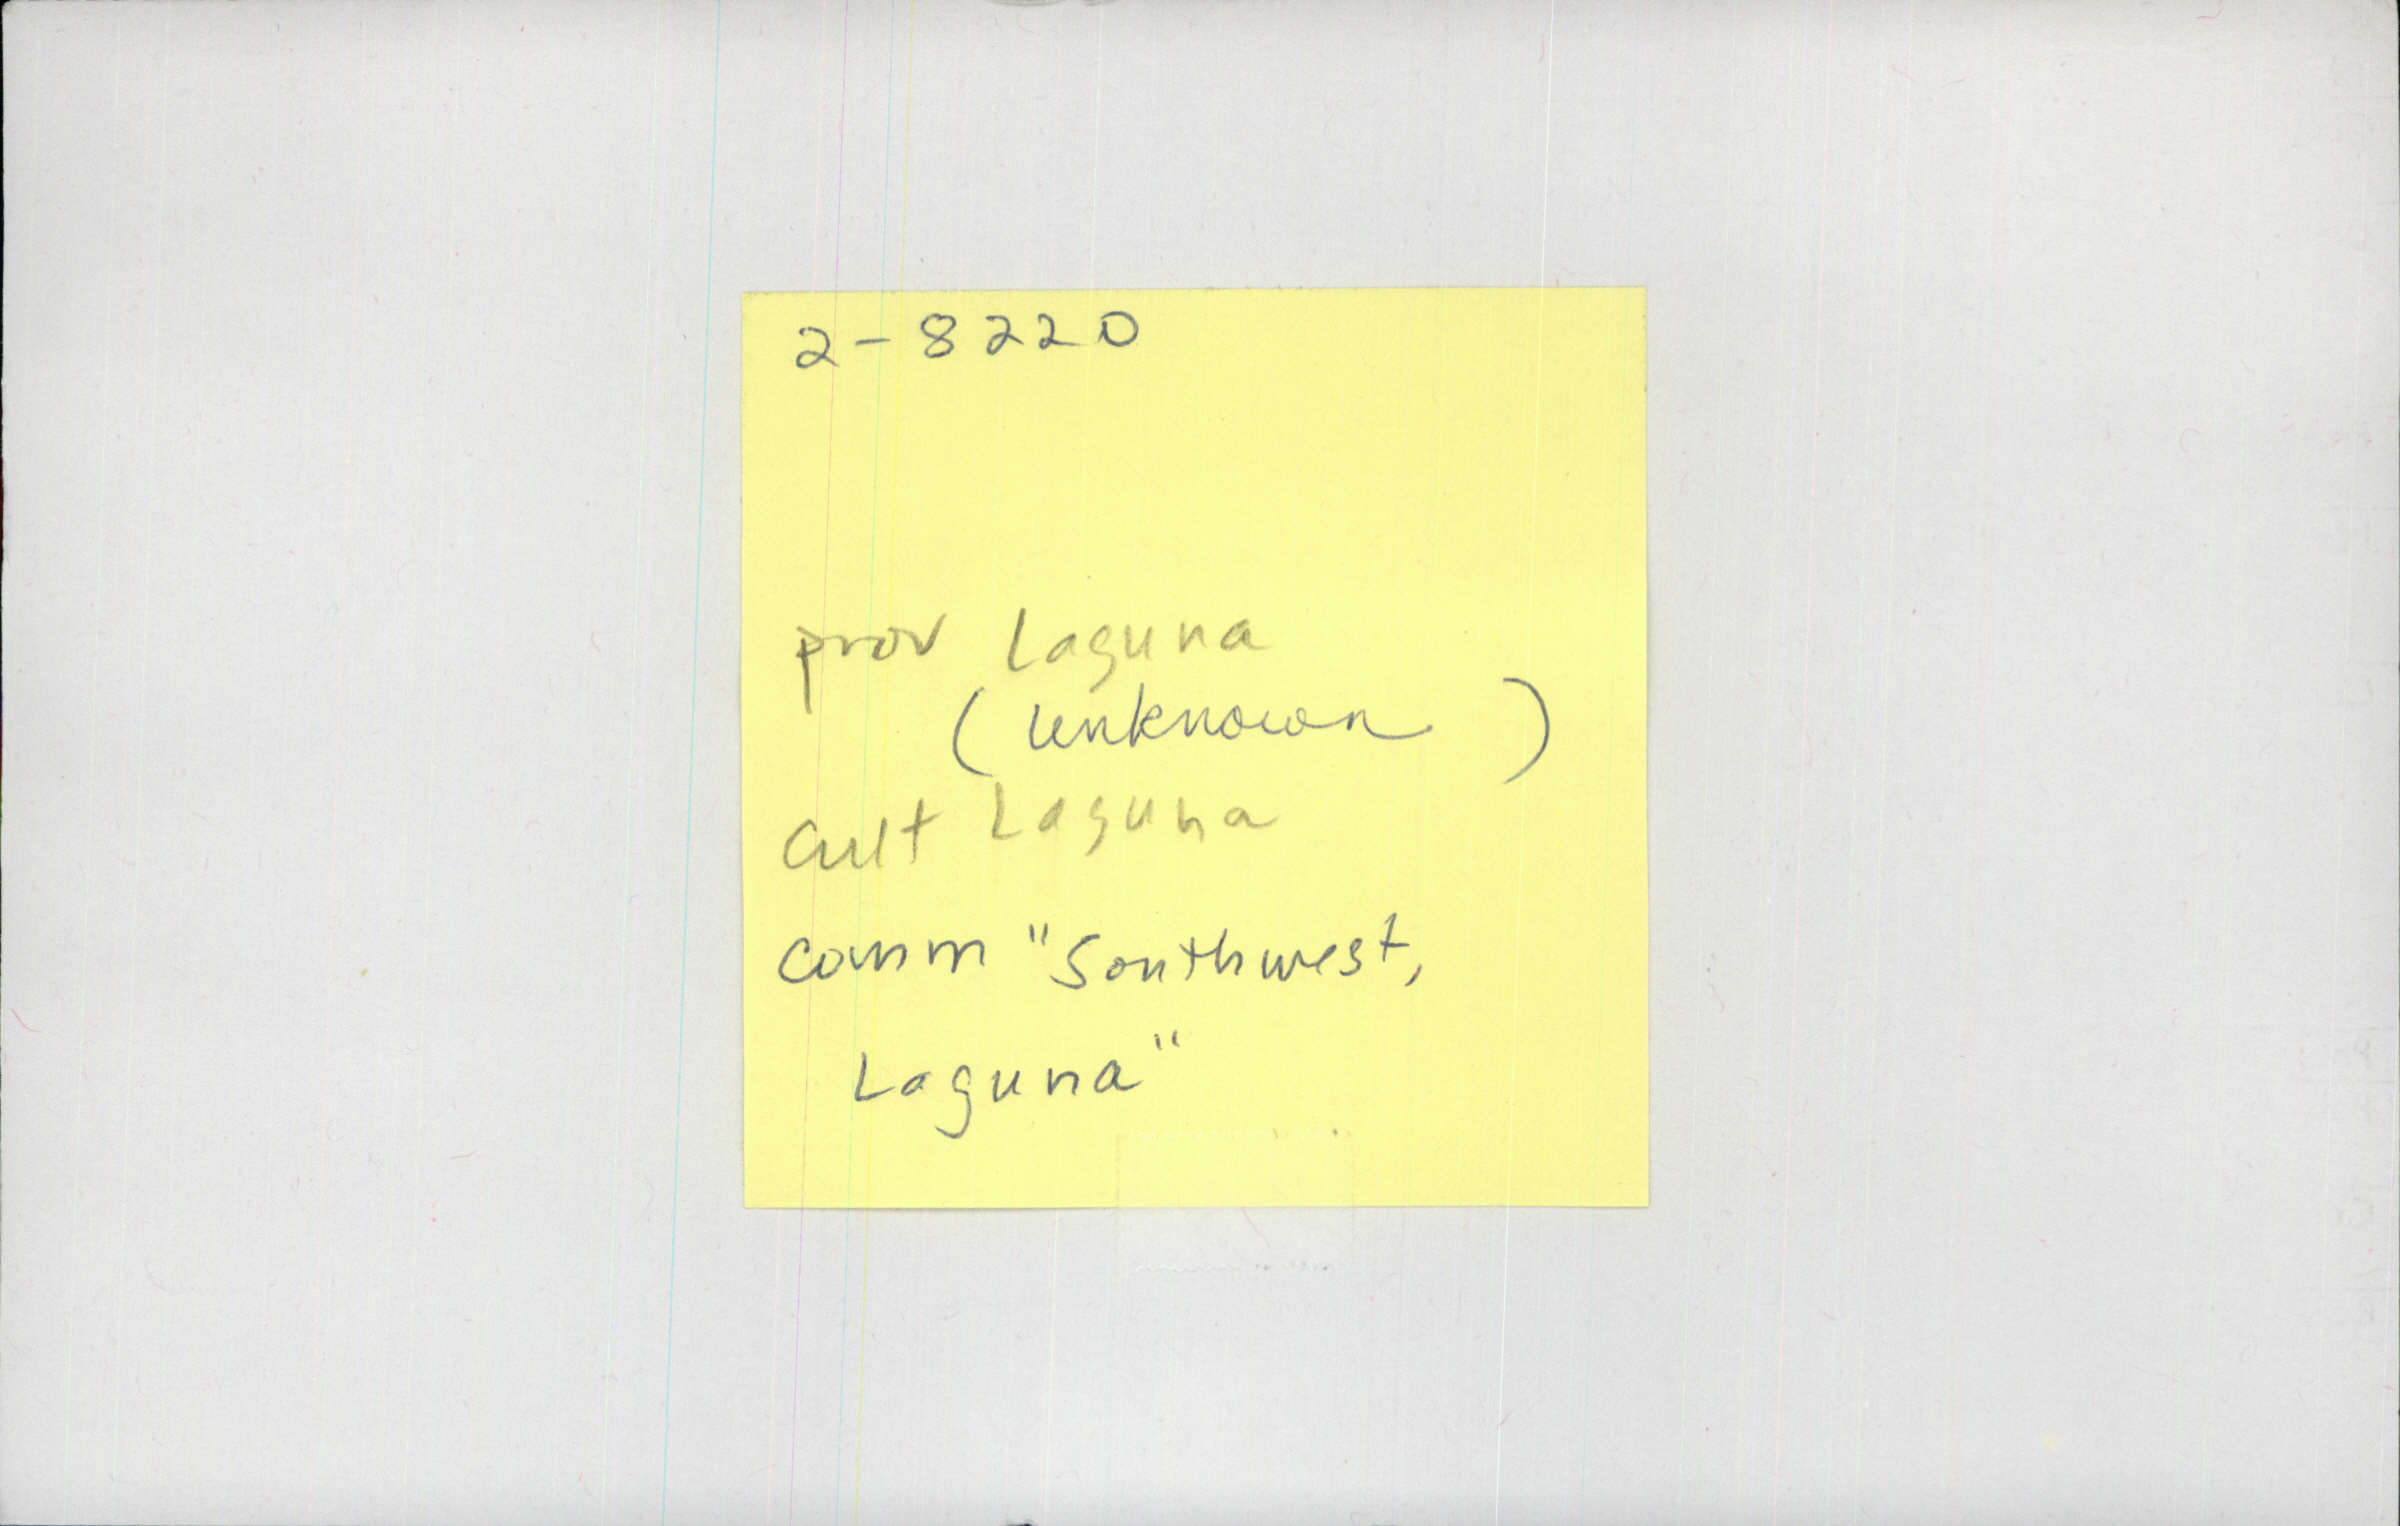 2-8220
prov Laguna
(unknown)
Cult Laguna
Comm "Southwest,
Laguna"